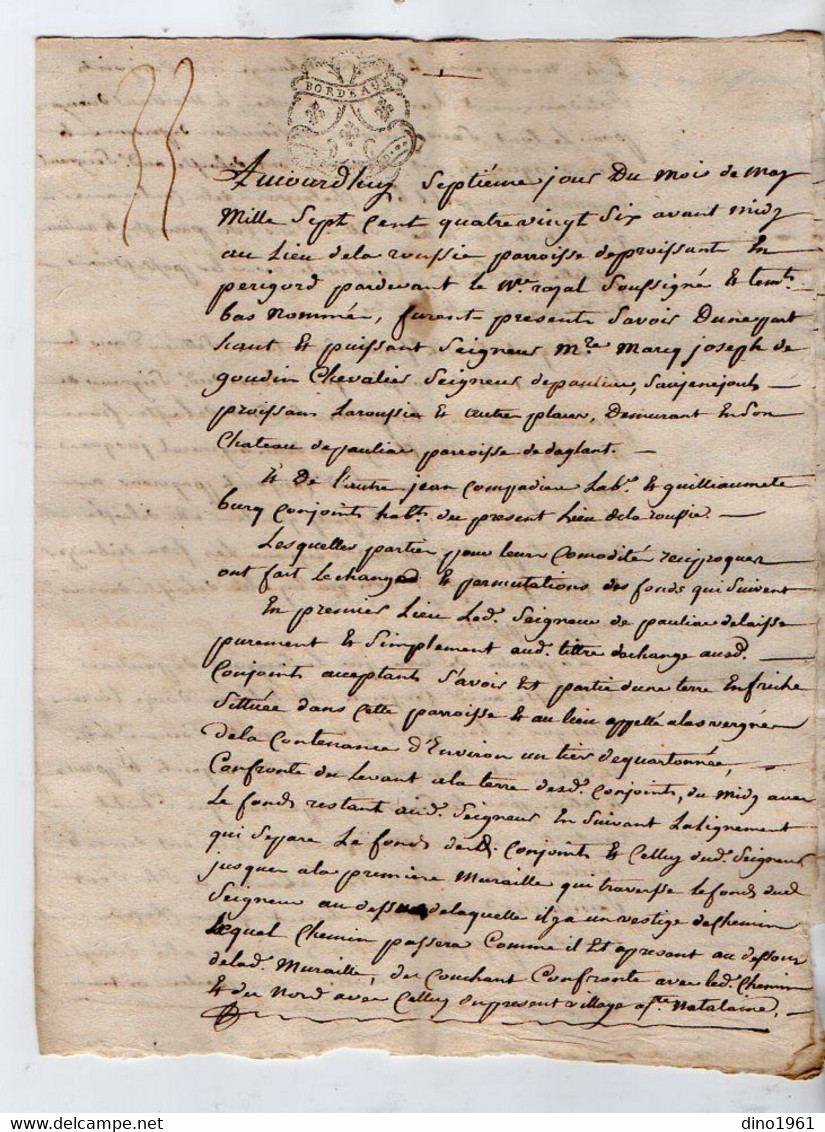 BORDEAUX
Aujourdhuy septiéme jour du mois de may
mille sept cent quatre vingt six avant midy
au lieu dela roussie parroisse deproissant En
perigord pardevant le Nre. royal soussigné & temts.
bas nommés, furent presents savoir dune part
haut & puissant seigneur Mre. Marcq joseph de
goudin chevalier seigneur depauliac,
proissans Laroussie & autres places, demurant En son
chateau depauliac parroisse dedaglant. —
& De l'autre jean Compadieu Labr. & guilliaumete
burg conjoints habts. du present Lieu dela roussie. —
Lesquelles parties pour leurs comodité reciproques
ont fait lechange & permutations des fonds qui suivent
En premier Lieu Led. seigneur de pauliac delaisse
purement & simplement aud. tittre dechange ausd. —
conjoints acceptants savoir Est partie dune terre En friche
sittuée dans cette parroisse & au lieu appellé alas vergnes
dela contenance d'Environ un tiers de quartonnée, —
confronte du levant ala terre desd. conjoints, du midy avec
Le fonds restant aud. seigneur En suivant Lalignement
qui separe Le fonds desd. conjoints & celluy dud. seigneur
jusques ala premiere muraille qui traverse lefonds dud
seigneur au dessus delaquelle il y a un vestige dechemin
Lequel chemin passera comme il Est apresent au dessous
delad. muraille, du couchant confronte avec led. chemin
& du nord avec celluy dupresent village a Ste. Natalaine, —
dino1961